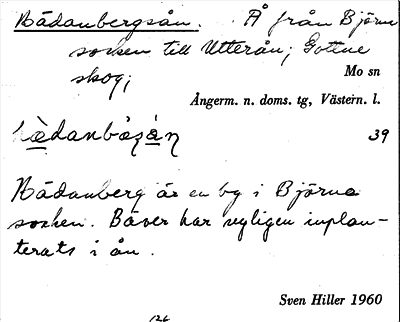 Bådanbergsån. Å från Björna
socken till Utterån; Gottne
skog;
Mo sn
Ångerm. n. doms. tg, Västern. l.
39
Bådanberg är en by i Björna
socken. Bäver har nyligen inplan-
terats i ån.
Sven Hiller 1960